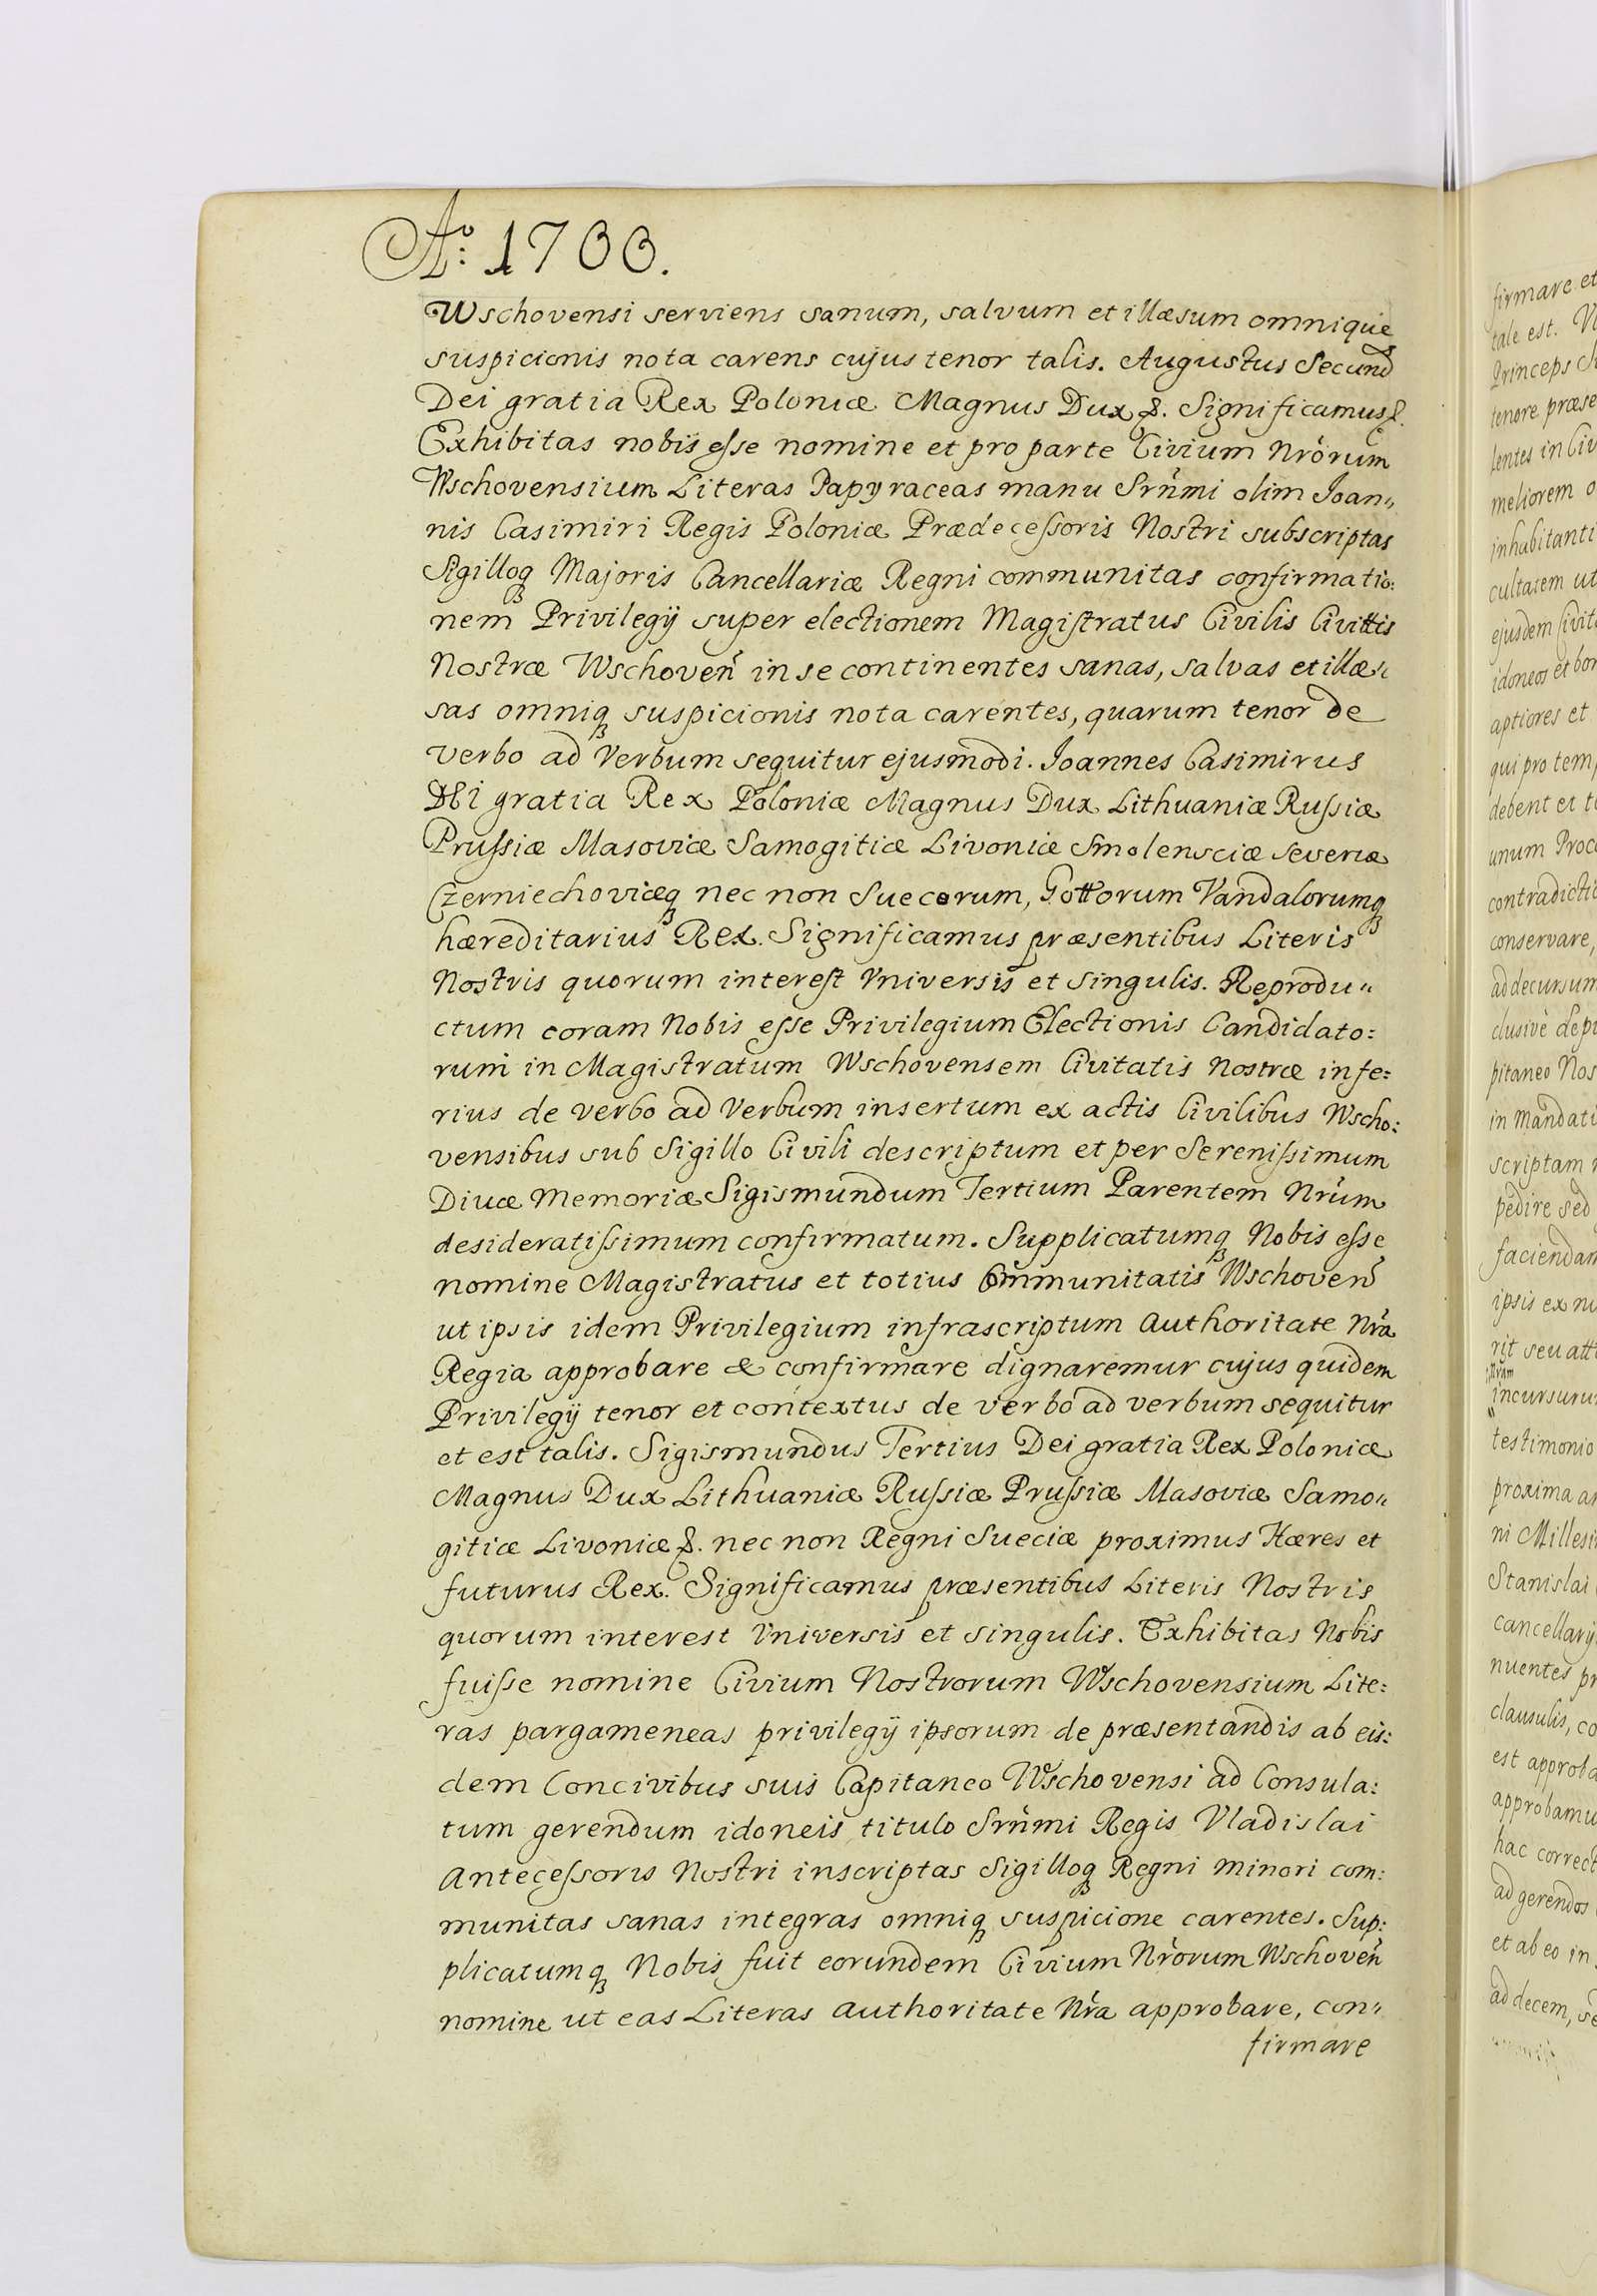 Aº: 1700.
Wschovensi serviens sanum, salvum et illæsum omnique
suspicionis nota carens cujus tenor talis. Augustus Secund9
Dei gratia Rex Poloniæ Magnus Dux &. Significamus &.
Exhibitas nobis esse nomine et pro parte Civium Nrõrum
Wschovensium Literas Papyraceas manu Srñmi olim Joan„
nis Casimiri Regis Poloniæ Prædecessoris Nostri subscriptas
Sigilloqꝫ Majoris Cancellariæ Regni communitas confirmatio:
nem Privilegij super electionem Magistratus Civilis Civittis
Nostræ Wschoveñ in se continentes sanas, salvas et illæ„
sas omniqꝫ suspicionis nota carentes, quarum tenor de
verbo ad verbum sequitur ejusmodi. Joannes Casimirus
DEi gratia Rex Poloniæ Magnus Dux Lithuaniæ Russiæ
Prussiæ Masoviæ Samogitiæ Livoniæ Smolensciæ Severiæ
Czerniechoviæqꝫ nec non Suecorum, Gottorum Vandalorumqꝫ
hæreditarius Rex. Significamus præsentibus Literis
Nostris quorum interest Vniversis et singulis. Reprodu„
ctum coram Nobis esse Privilegium Electionis Candidato:
rum in Magistratum Wschovensem Civitatis Nostræ infe:
rius de verbo ad verbum insertum ex actis Civilibus Wscho:
vensibus sub Sigillo Civili descriptum et per Serenissimum
Divæ Memoriæ Sigismundum Tertium Parentem Nrum
desideratissimum confirmatum. Supplicatumqꝫ Nobis esse
nomine Magistratus et totius Communitatis Wschoveñ
ut ipsis idem Privilegium infrascriptum Authoritate Nra
Regia approbare & confirmare dignaremur cujus quidem
Privilegij tenor et contextus de verbo ad verbum sequitur
et est talis. Sigismundus Tertius Dei gratia Rex Poloniæ
Magnus Dux Lithuaniæ Russiæ Prussiæ Masoviæ Samo„
gitiæ Livoniæ &. nec non Regni Sueciæ proximus Hæres et
futurus Rex. Significamus præsentibus Literis Nostris
quorum interest Vniversis et singulis. Exhibitas Nobis
fuisse nomine Civium Nostrorum Wschovensium Lite:
ras pargameneas privilegij ipsorum de præsentandis ab eis:
dem Concivibus suis Capitaneo Wschovensi ad Consula:
tum gerendum idoneis titulo Srñmi Regis Vladislai
Antecessoris Nostri inscriptas Sigilloqꝫ Regni minori com:
munitas sanas integras omniqꝫ suspicione carentes. Sup:
plicatumqꝫ Nobis fuit eorundem Civium Nrorum Wschoveñ
nomine ut eas Literas authoritate Nra approbare, con„
firmare
firmare et
tale est.
Princeps
tenore præse
lentes in Civ
meliorem o
inhabitanti
cultatem ut
ejusdem Civit
idoneos et bon
aptiores et
qui pro temp
debent et t
unum Proc
contradictio
conservare,
ad decursum
clusivè dep
pitaneo Nos
in Mandati
scriptam
pedire sed
faciendam
ipsis ex nu
rit seu att
Nram
incursurum
testimonio
proxima an
ni Millesi
Stanislai
cancellarij
nuentes pr
clausulis, co
est approba
approbamu
hac correct
ad gerendos
et ab eo in
ad decem, se